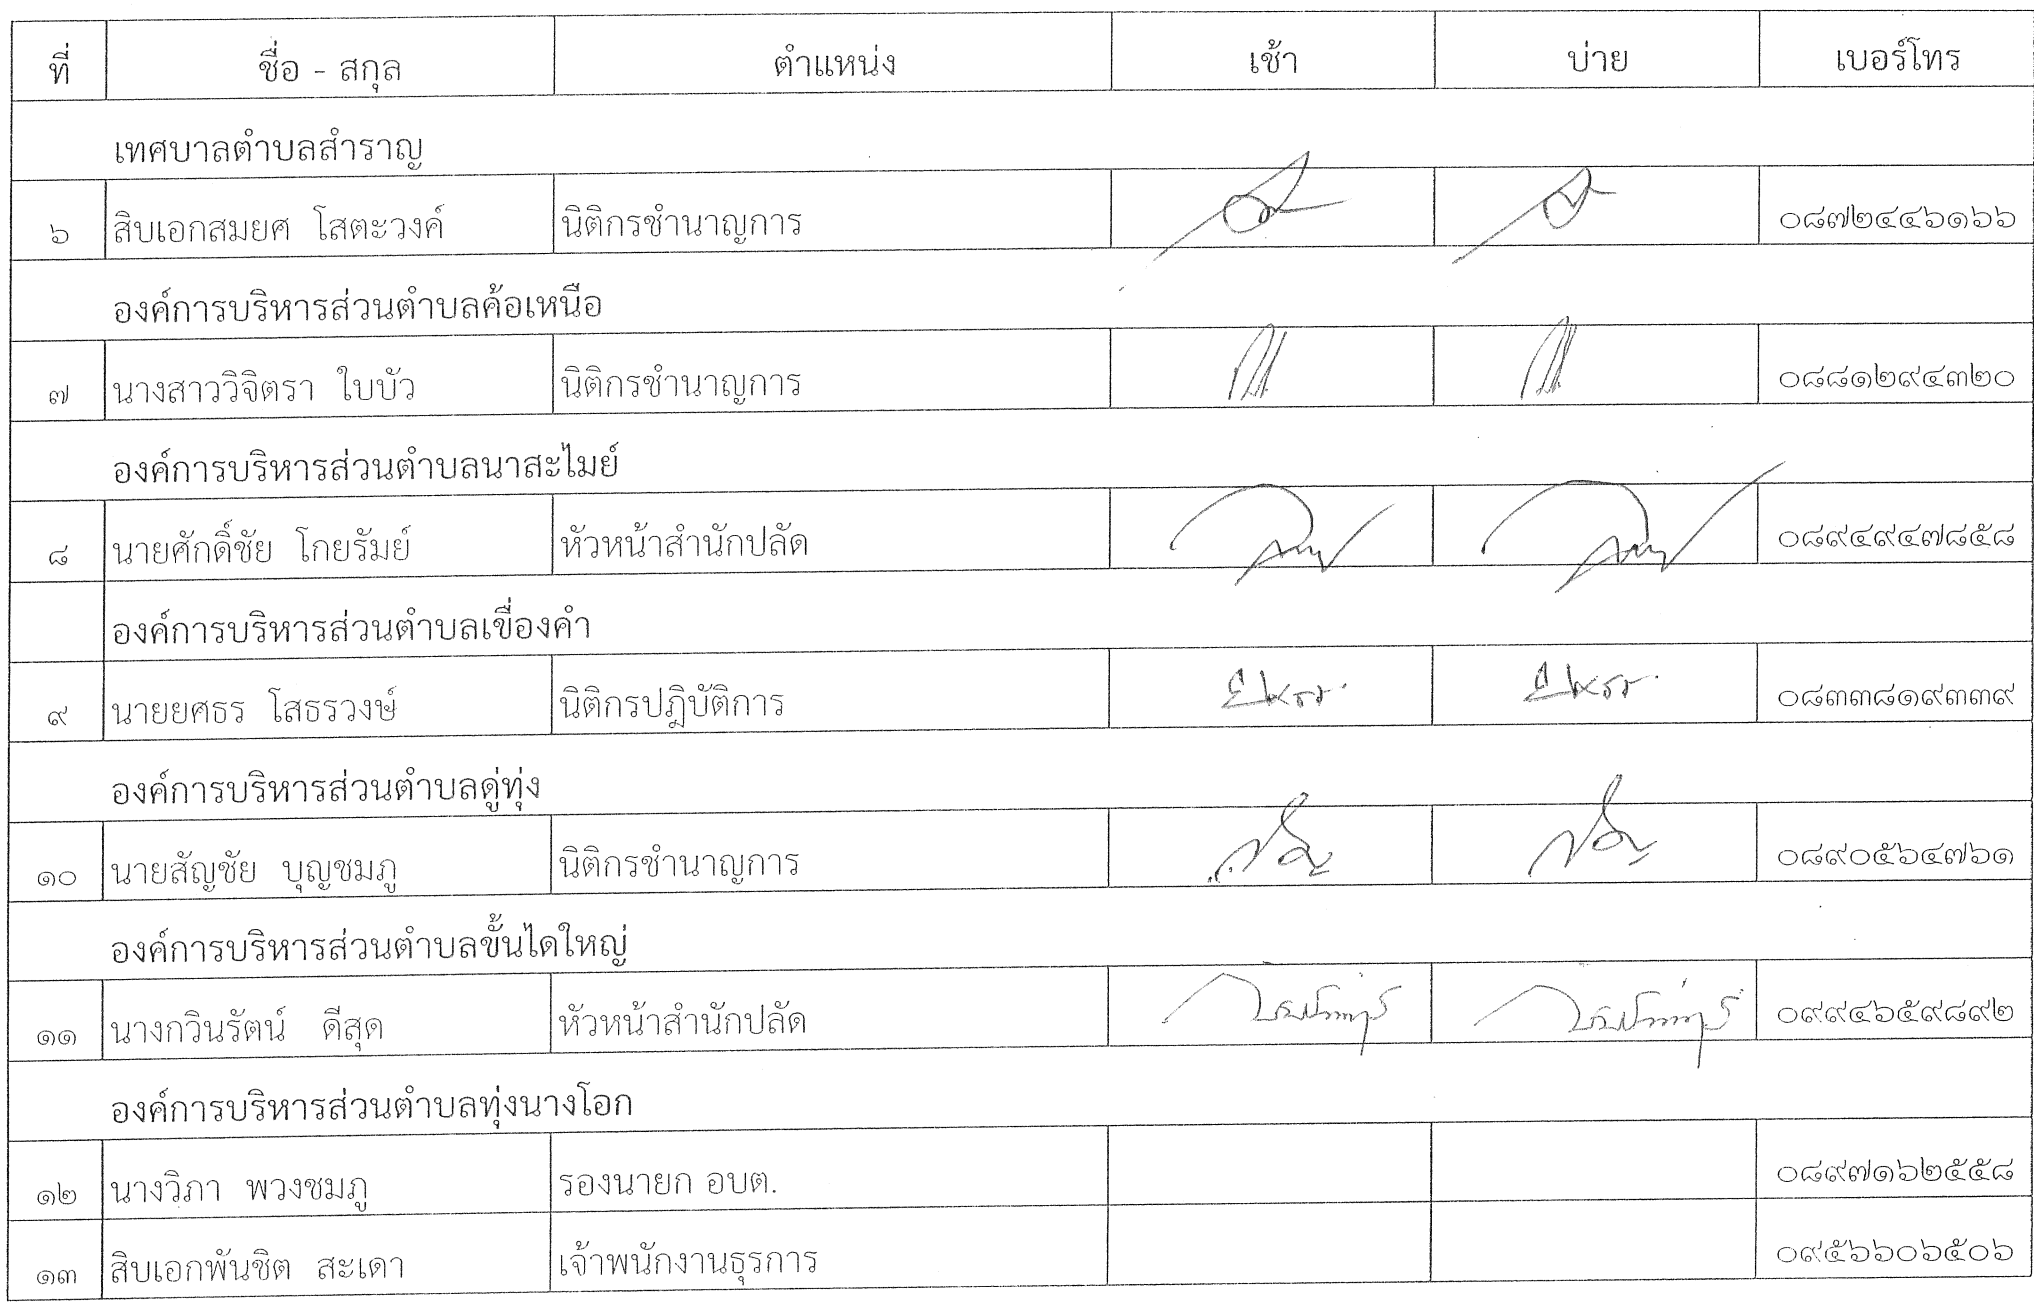 ที่ ชื่อ - สกุล ตำแหน่ง เช้า บ่าย เบอร์โทร
เทศบาลตำบลสำราญ
๖ สิบเอกสมยศ โสตะวงค์ นิติกรชำนาญการ ๐๘๗๒๔๔๖๑๖๖
องค์การบริหารส่วนตำบลค้อเหนือ
๗ นางสาววิจิตรา ใบบัว นิติกรชำนาญการ ๐๘๘๑๒๙๔๓๒๐
องค์การบริหารส่วนตำบลนาสะไมย์
๘ นายศักดิ์ชัย โกยรัมย์ หัวหน้าสำนักปลัด ๐๘๙๔๙๔๗๘๕๘
องค์การบริหารส่วนตำบลเขื่องคำ
๙ นายยศธร โสธรวงษ์ นิติกรปฎิบัติการ ยศธร ยศธร ๐๘๓๓๘๑๙๓๓๙
องค์การบริหารส่วนตำบลดู่ทุ่ง
๑๐ นายสัญชัย บุญชมภู นิติกรชำนาญการ ๐๘๙๐๕๖๔๗๖๑
องค์การบริหารส่วนตำบลขั้นไดใหญ่
๑๑ นางกวินรัตน์ ดีสุด หัวหน้าสำนักปลัด ๐๙๙๔๖๕๙๘๙๒
องค์การบริหารส่วนตำบลทุ่งนางโอก
๑๒ นางวิภา พวงชมภู รองนายก อบต. ๐๘๙๗๑๖๒๕๕๘
๑๓ สิบเอกพันชิต สะเดา เจ้าพนักงานธุรการ ๐๙๕๖๖๐๖๕๐๖